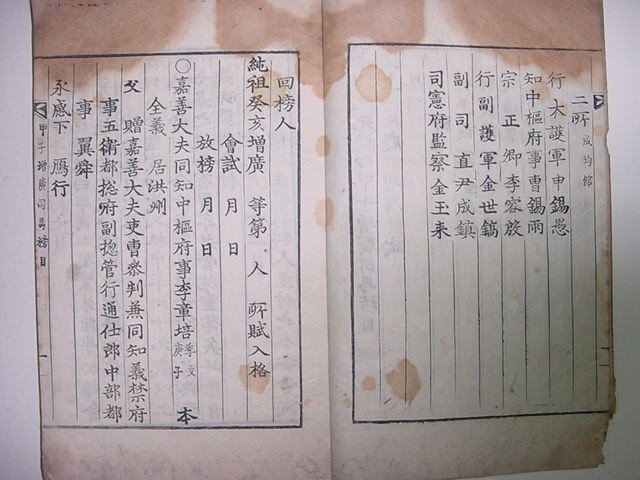 二所 成均館
行大護軍申錫愚
知中樞府事曹錫雨
宗正卿李容殷
行副護軍金世鎬
副司直尹成鎮
司憲府監察金王来
回榜人
純祖癸亥增廣 等第 人 所賦入格
會試 月 日
放榜 月 日
○嘉善大夫同知中樞府事李章培 季文 庚子 本
全義 居洪州
父 贈嘉善大夫吏曹叅判兼同知義禁府
事五衛都捴府副捴管行通仕郎中部都
事 翼舜
永感下 鴈行
甲子增廣司馬榜目 一